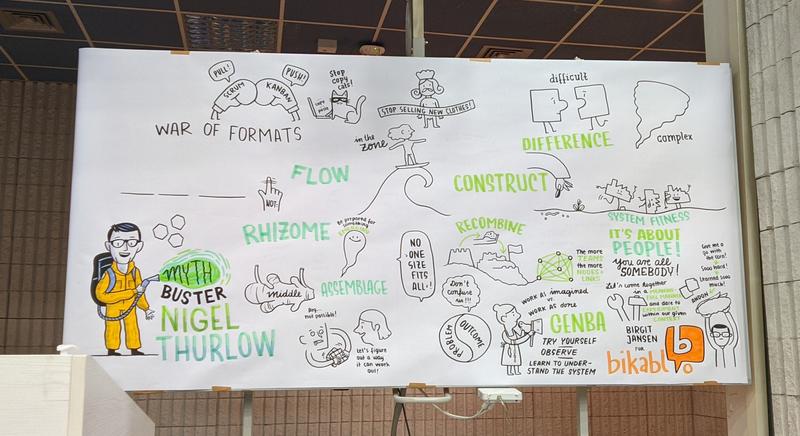 PULL!
PUSH!
SCRUM
KANBAN
WAR OF FORMATS
Stop
copy
cats!
STOP SELLING NEW CLOTHES!
difficult
DIFFERENCE
complex
in the
ZONE
FLOW
NOT!
CONSTRUCT
SYSTEM FITNESS
MYTH
BUSTER
NIGEL
THURLOW
RHIZOME
Be prepared for
something
middle
ASSEMBLAGE
not possible!
Let's figure
out a way
it can work
out!
NO
ONE
SIZE
FITS
ALL!
RECOMBINE
Don't
confuse
PROBLEM
OUTCOME
The more
TEAMS
the more
NODES +
LINKS
WORK AS imagined
vs.
WORK AS done
GENBA
TRY YOURSELF
OBSERVE
LEARN TO UNDER-
STAND THE SYSTEM
IT'S ABOUT
PEOPLE!
You are all
SOMEBODY!
Let's come together
in a MEANING-
FUL MANNER
and dare to
EXPERIMENT
within our given
CONTEXT
ANDON
Sooo hard!
Learned sooo
much!
BIRGIT
JANSEN
FÜR
bikablo
b